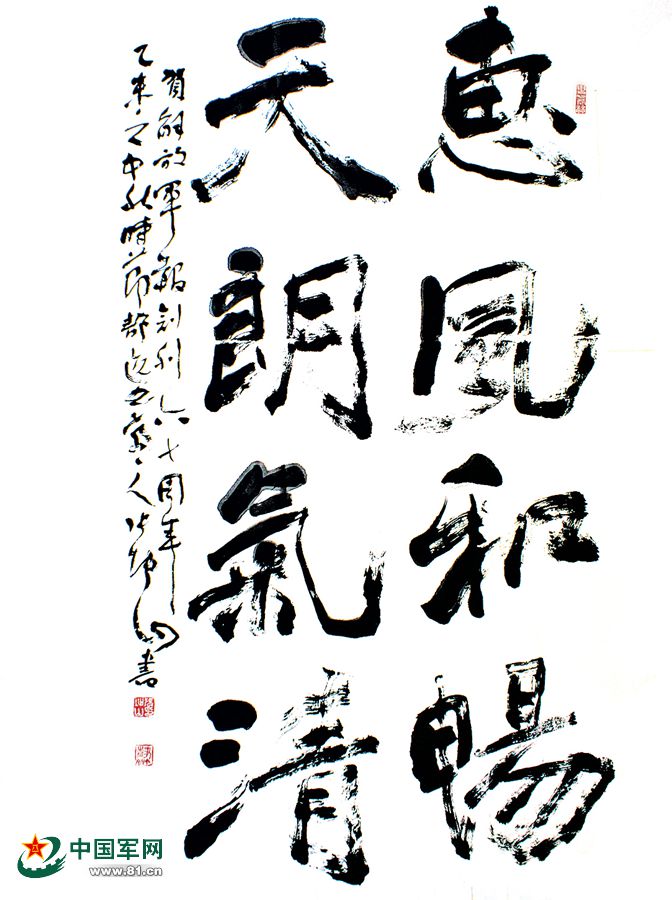 惠風和暢
天朗氣清
賀解放軍報創刊六十周年
乙未之中秋時節
書
中国军网
www.81.cn